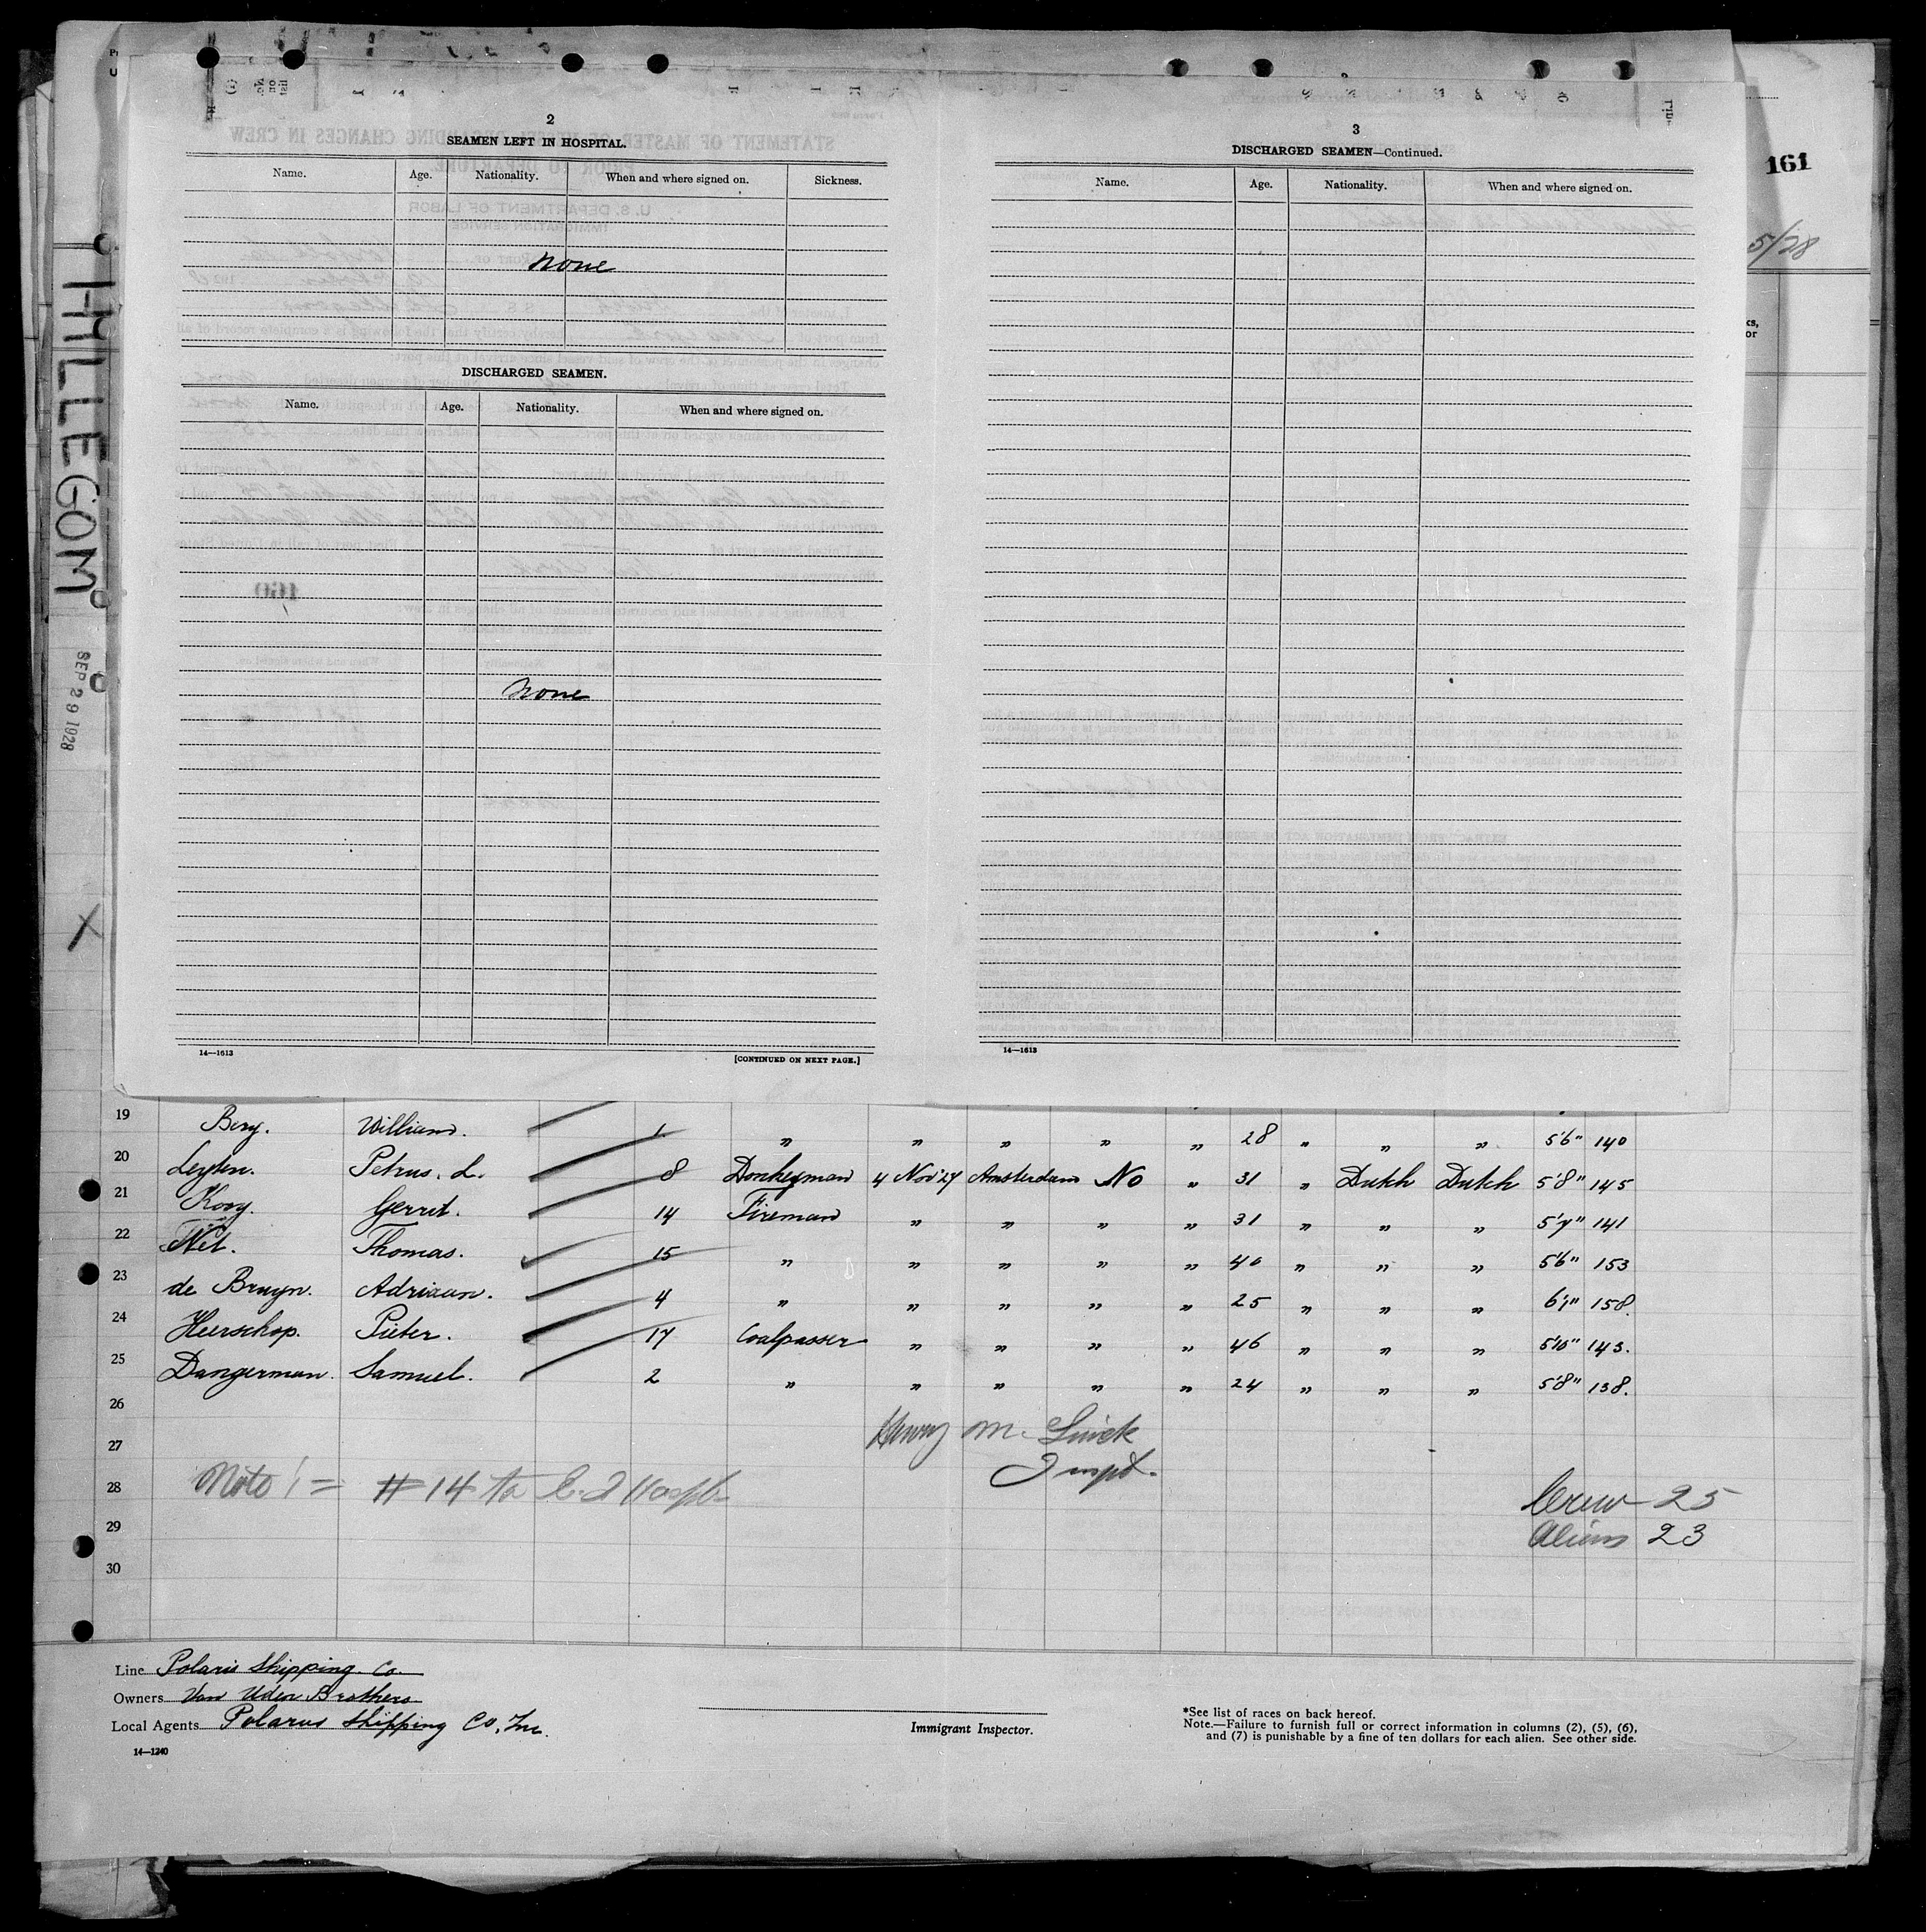 161
5/28
HILLEGOM
SEP 29 1928
X
2
SEAMEN LEFT IN HOSPITAL.
Name. Age. Nationality. When and where signed on. Sickness.
None
DISCHARGED SEAMEN.
Name. Age. Nationality. When and where signed on.
None
14—1613 [CONTINUED ON NEXT PAGE.]
3
DISCHARGED SEAMEN—Continued.
Name. Age. Nationality. When and where signed on.
14—1613
19 Berg. William. 1 " " " " " 28 " " " 5'6" 140
20 Leyten. Petrus. L. 8 Donkeyman 4 Nov '27 Amsterdam No " 31 " Dutch Dutch 5'8" 145
21 Kooy. Gerrit. 14 Fireman " " " " 31 " " " 5'7" 141
22 Net. Thomas. 15 " " " " " 40 " " " 5'6" 153
23 de Bruyn. Adriaan. 4 " " " " " 25 " " " 6'1" 158.
24 Heerschop. Pieter. 17 Coalpasser " " " " 46 " " " 5'10" 143.
25 Dangerman. Samuel. 2 " " " " " 24 " " " 5'8" 138.
26
Henry M.
27
Inspt.
28 Note! = #14 to Hospt. Crew 25
29 Aliens 23
30
Line Polaris Shipping Co.
Owners Van Uden Brothers
Local Agents Polarus Shipping Co, Inc.
14—1240
Immigrant Inspector.
*See list of races on back hereof.
Note.—Failure to furnish full or correct information in columns (2), (5), (6),
and (7) is punishable by a fine of ten dollars for each alien. See other side.